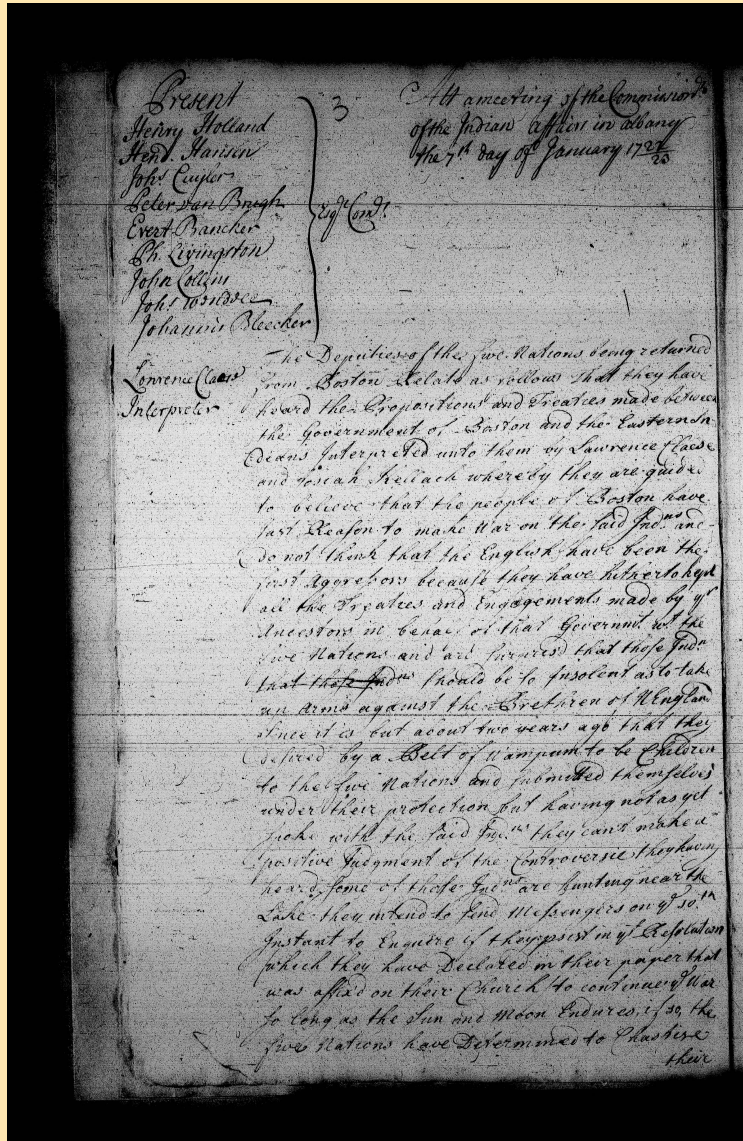 Present
Henry Holland
Hend. Hansen
Johs. Cuyler
Peter van Brugh
Evert Bancker
Ph. Livingston
John Collins
Johs Wendell
Johannis Bleecker
Esqrs. Comrs.
3
Att a meeting of the Commissionrs.
of the Indian Affairs in albany
the 7th. day of January 1722/23
Lowrence Claese
Interpreter
The Deputies of the five Nations being returned
from Boston Relate as follows That they have
heard the Propositions and Treaties made between
the Government of Boston and the Eastern In
deans Interpreted unto them by Lawrence Claese
and Josiah Kellach whereby they are guided
to believe that the people of Boston have
Just Reason to make War on the said Indns. and
do not think that the English have been the
first Aggressors because they have hitherto kept
all the Treaties and Engagements made by yr.
Ancestors in behalf of that Governmt. wt. the
five Nations and are surprized that those Indns.
that those Indns. should be so Insolent as to take
up Arms against the Brethren of NEngland
since it is but about two years ago that they
desired by a Belt of Wampum to be Children
to the five Nations and submitted themselves
under their protection but having not as yet
spoke with the said Indns. they can't make a
positive Judgment of the Controversie they having
heard some of those Indns. are hunting near the
Lake they intend to send Messengers on ye 10th.
Instant to Enquire if they psist in ye Resolution
which they have Declared in their paper that
was affixd on their Church to continue ye War
so long as the Sun and Moon Endures, if so, the
five Nations have Determined to Chastise
their